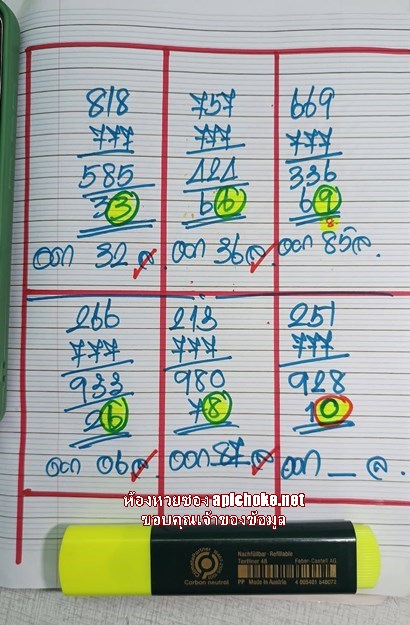 818
777
585
33
ออก 32 ล.
757
777
424
66
ออก 36 ล.
669
777
336
69
8
ออก 85 ล.
266
777
933
26
ออก 06 ล.
213
777
980
78
ออก 87 ล
251
777
928
10
ออก _ ล.
ห้องหวยซอง apichoke.net
ขอบคุณเจ้าของข้อมูล
Carbon neutral
Nachfüllbar · Refillable
Textliner 48
Faber-Castell AG
PP Made in Austria